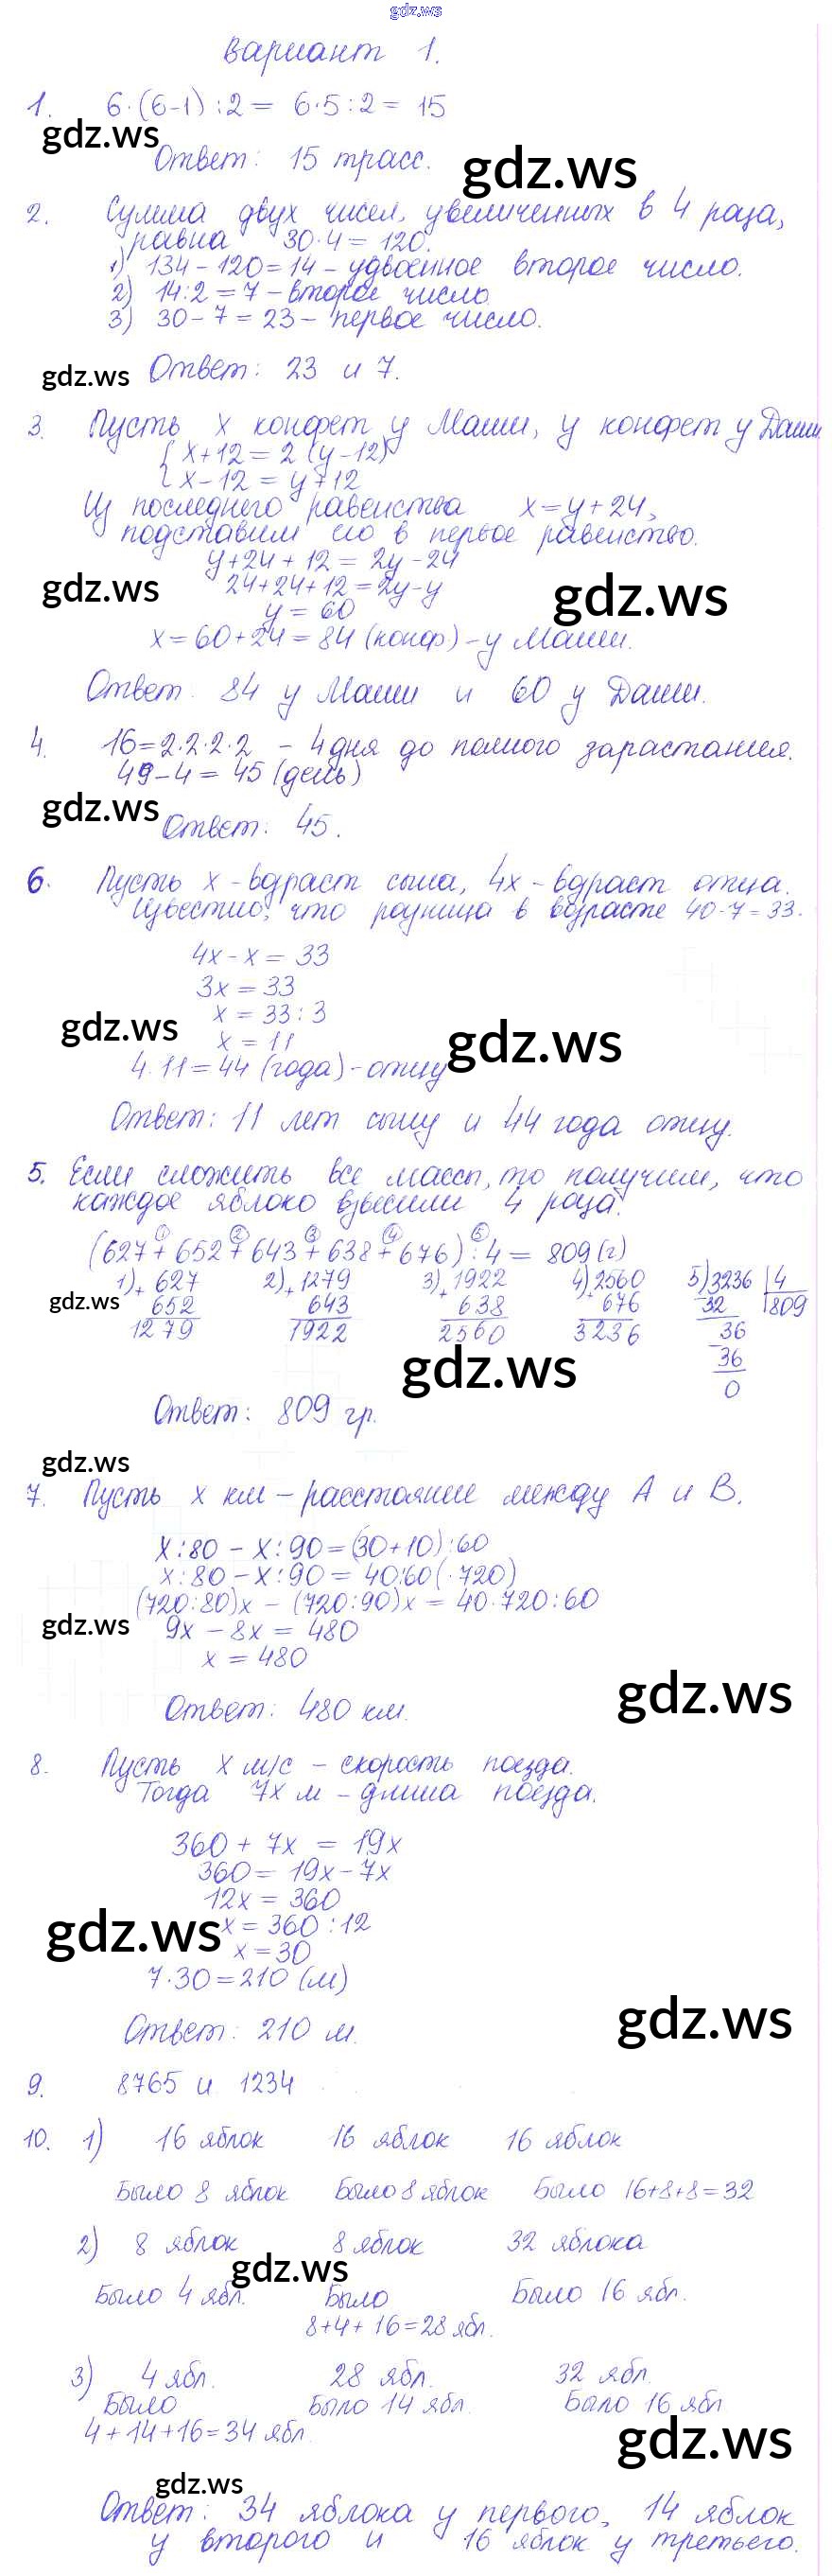 gdz.ws
Вариант 1.
1. 6·(6-1):2 = 6·5:2 = 15
gdz.ws
Ответ: 15 трасс.
gdz.ws
2. Сумма двух чисел, увеличенных в 4 раза,
равна 30·4=120.
1) 134-120=14 - удвоенное второе число.
2) 14:2=7 - второе число
3) 30-7=23 - первое число.
gdz.ws
Ответ: 23 и 7.
3. Пусть x конфет у Маши, y конфет у Даши
{ x+12=2(y-12)
{ x-12=y+12
Из последнего равенства x=y+24,
подставим его в первое равенство.
y+24+12=2y-24
gdz.ws
24+24+12=2y-y
gdz.ws
y=60
x=60+24=84 (конф) - у Маши.
Ответ. 84 у Маши и 60 у Даши.
4. 16=2·2·2·2 - 4 дня до полного зарастания.
49-4=45 (день)
gdz.ws
Ответ: 45.
6. Пусть x - возраст сына, 4x - возраст отца.
Известно, что разница в возрасте 40-7=33.
4x-x=33
3x=33
x=33:3
gdz.ws
gdz.ws
x=11
4·11=44 (года) - отцу
Ответ: 11 лет сыну и 44 года отцу.
5. Если сложить все массы, то получим, что
каждое яблоко взвесили 4 раза.
1 2 3 4 5
(627+652+643+638+676):4=809(г)
1) + 627 2) + 1279 3) + 1922 4) + 2560 5) 3236 | 4
gdz.ws
652 643 638 676 32 809
1279 1922 2560 3236 36
gdz.ws
36
0
Ответ: 809 гр.
gdz.ws
7. Пусть x км - расстояние между A и B.
x:80 - x:90=(30+10):60
x:80 - x:90=40:60(·720)
(720:80)x - (720:90)x = 40·720:60
gdz.ws
9x - 8x = 480
x = 480
gdz.ws
Ответ: 480 км.
8. Пусть x м/с - скорость поезда.
Тогда 7x м - длина поезда.
360 + 7x = 19x
360 = 19x-7x
12x = 360
gdz.ws
x = 360:12
x=30
7·30=210 (м)
gdz.ws
Ответ: 210 м.
9. 8765 и 1234
10. 1) 16 яблок 16 яблок 16 яблок
Было 8 яблок Было 8 яблок Было 16+8+8=32
2) 8 яблок 8 яблок 32 яблока
gdz.ws
Было 4 ябл. Было Было 16 ябл.
8+4+16=28 ябл.
3) 4 ябл. 28 ябл. 32 ябл.
Было Было 14 ябл. Было 16 ябл
4+14+16=34 ябл.
gdz.ws
gdz.ws
Ответ: 34 яблока у первого, 14 яблок
у второго и 16 яблок у третьего.